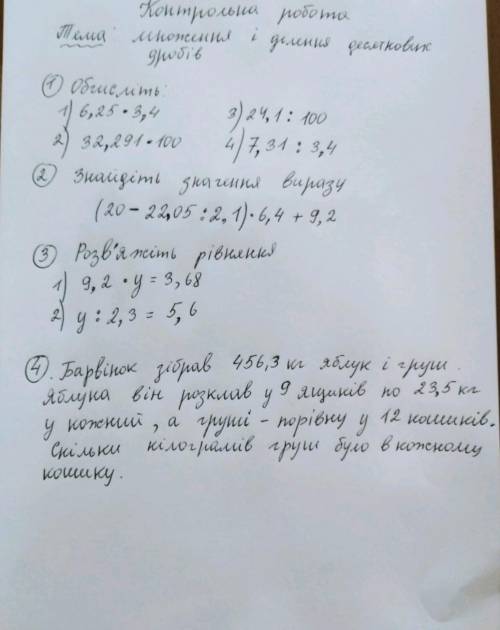 Контрольна робота
Тема: множення і ділення десяткових
дробів
① Обчисліть:
1) 6,25 · 3,4 3) 24,1 : 100
2) 32,291 · 100 4) 7,31 : 3,4
② Знайдіть значення виразу
(20 - 22,05 : 2,1) · 6,4 + 9,2
③ Розв'яжіть рівняння
1) 9,2 · y = 3,68
2) y : 2,3 = 5,6
④. Барвінок зібрав 456,3 кг яблук і груш.
Яблука він розклав у 9 ящиків по 23,5 кг
у кожний, а груші - порівну у 12 кошиків.
Скільки кілограмів груш було в кожному
кошику.